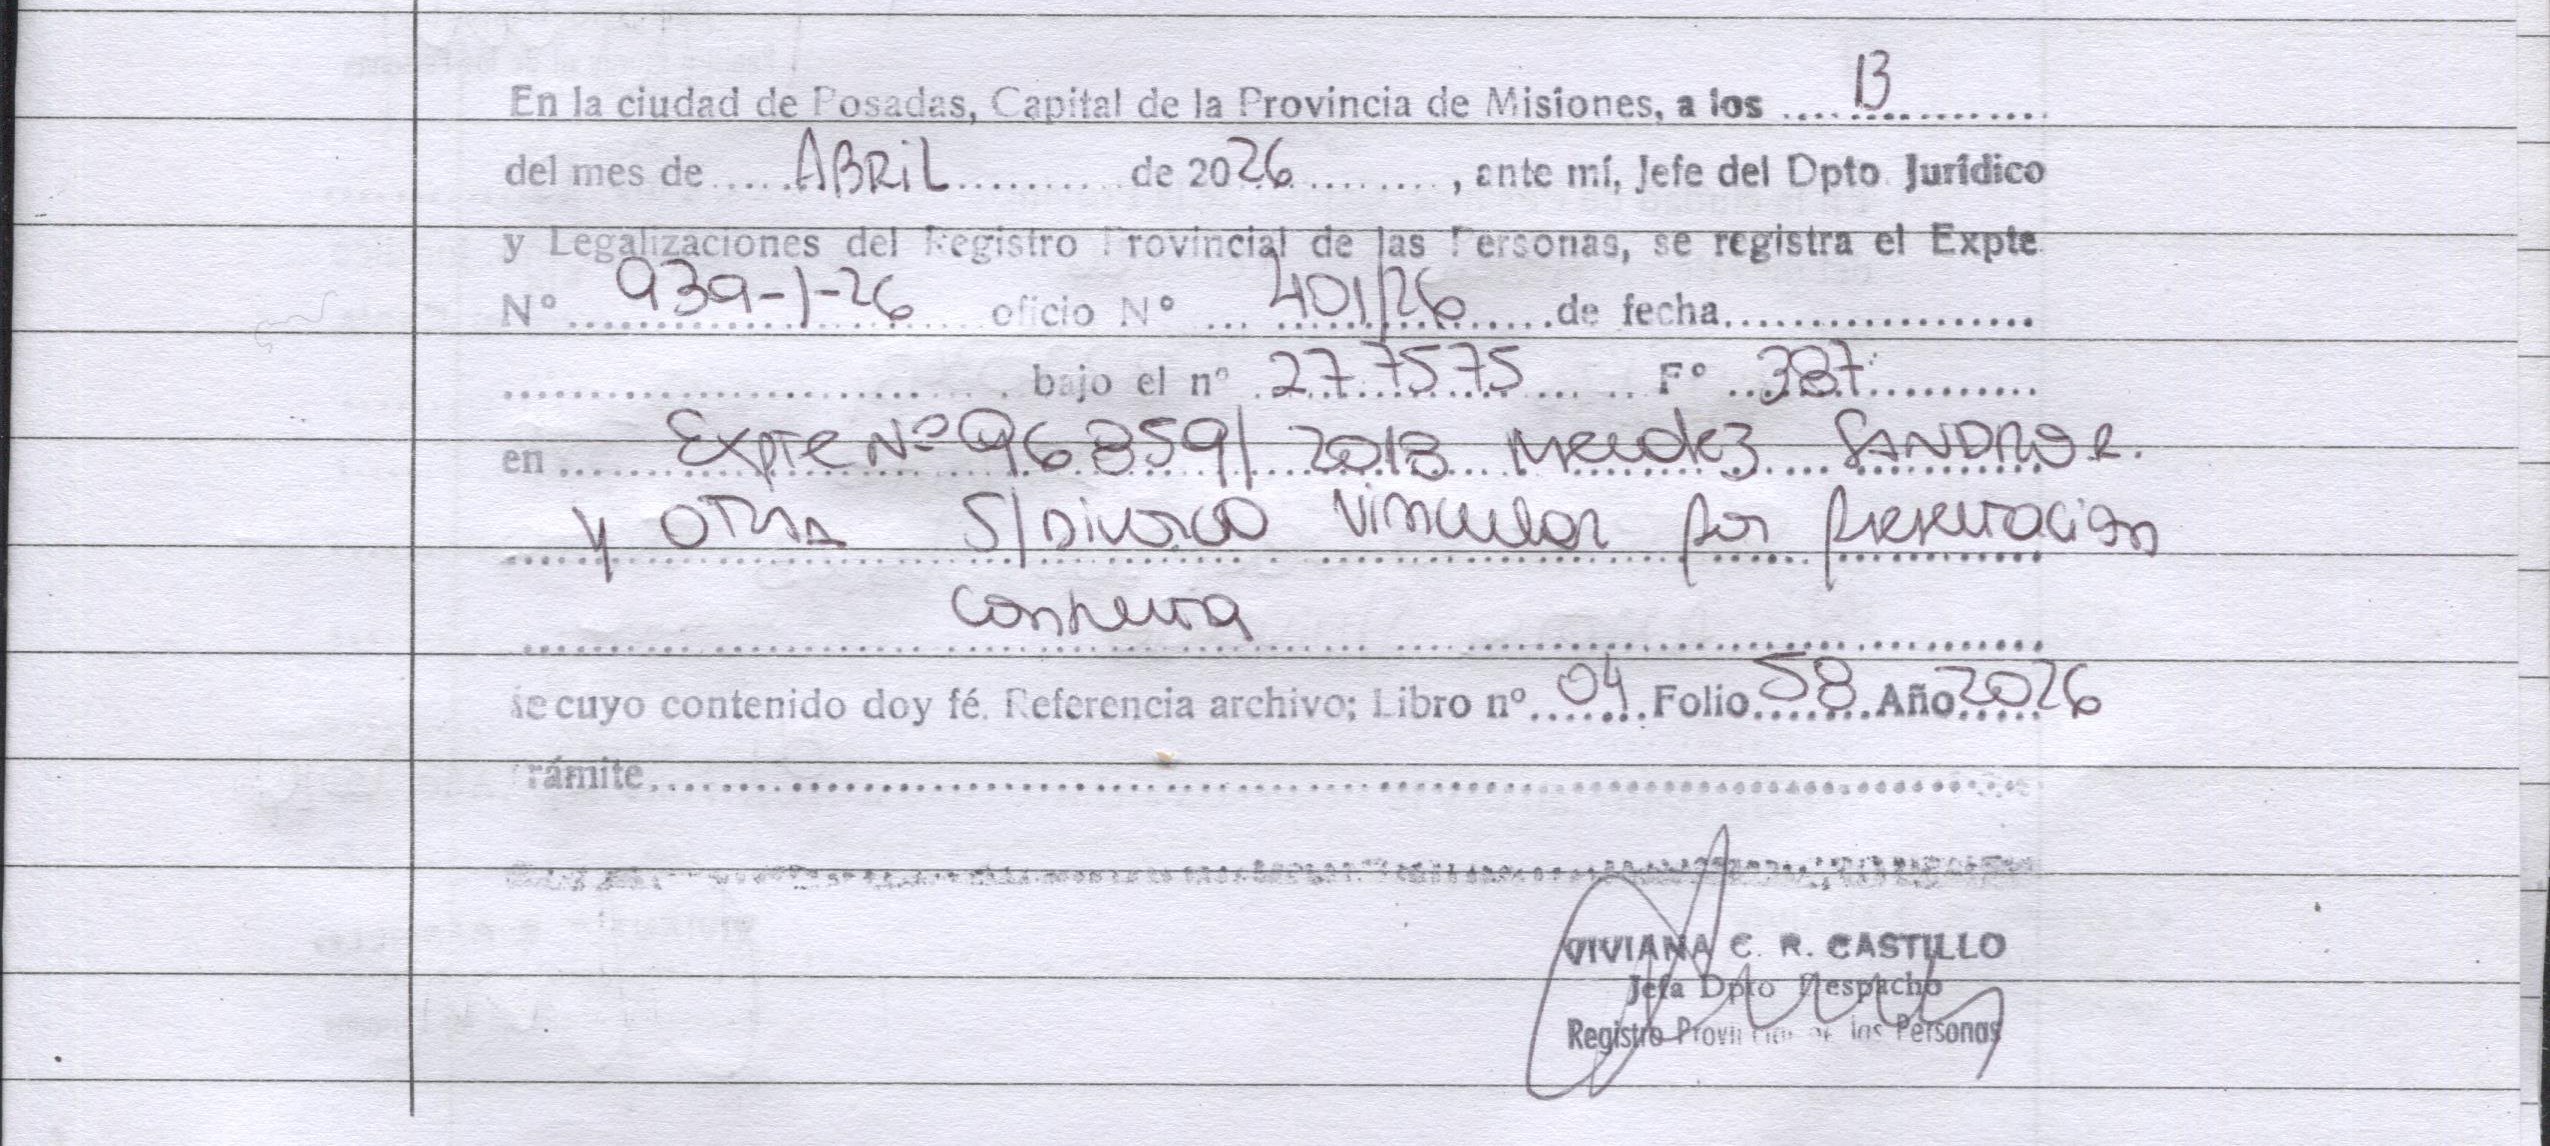 En la ciudad de Posadas, Capital de la Provincia de Misiones, a los .... 13 ....
del mes de ..... ABRIL .......... de 2026 ........, ante mí, Jefe del Dpto. Jurídico
y Legalizaciones del Registro Provincial de las Personas, se registra el Expte
Nº 939-1-26 oficio Nº ... 401/26 ..... de fecha...................
........................ bajo el nº 277575 ... Fº 387 ..........
en ..... Expte Nº 96859/2018 Mendez SANDRO R.
y OTRA S/Divorcio Vincular por presentación
Conjunta
de cuyo contenido doy fé. Referencia archivo; Libro nº 04 Folio 58 Año 2026
trámite.......................................
VIVIANA C. R. CASTILLO
Jefa Dpto Despacho
Registro Provincial de las Personas